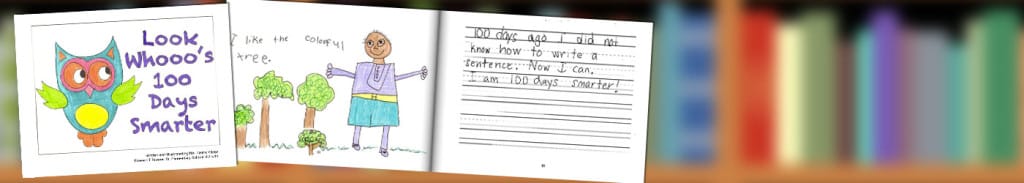 Look
Whooo's
100
Days
Smarter
I like the colorful
tree.
100 days ago i did not
know how to write a
sentence. Now I can.
I am 100 days smarter!